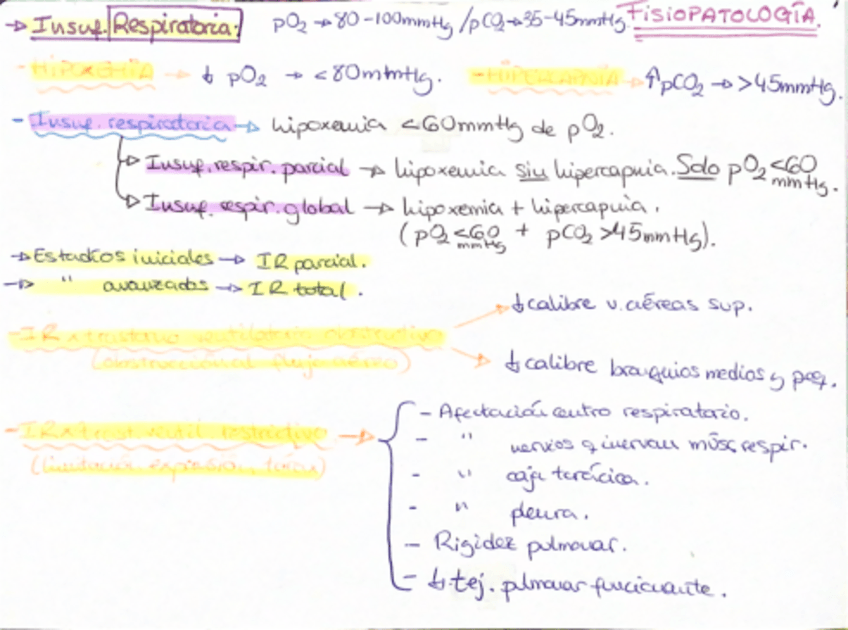 → Insuf. Respiratoria: pO2 → 80-100mmHg / pCO2 → 35-45mmHg. FISIOPATOLOGÍA.
- HIPOXEMIA → ↓ pO2 → < 80mmHg. - HIPERCAPNIA → ↑pCO2 → >45mmHg.
- Insuf. respiratoria → hipoxemia <60mmHg de pO2.
→ Insuf. respir. parcial → hipoxemia sin hipercapnia. Solo pO2 <60 mmHg.
→ Insuf. respir. global → hipoxemia + hipercapnia.
(pO2 <60 mmHg + pCO2 >45mmHg).
→ Estadios iniciales → IR parcial.
→ " avanzados → IR total.
- IR x trastorno ventilatorio obstructivo → ↓ calibre v. aéreas sup.
(obstrucción al flujo aéreo) → ↓ calibre bronquios medios y peq.
- IR x trast. ventil. restrictivo →
(limitación expansión tórax)
- Afectación centro respiratorio.
- " nervios q inervan músc. respir.
- " caja torácica.
- " pleura.
- Rigidez pulmonar.
- ↓ tej. pulmonar funcionante.